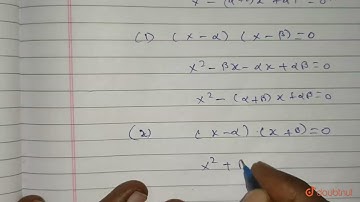 x² - (α+β)x + αβ = 0
(1) (x-α) (x-β)=0
x² - βx - αx + αβ = 0
x² - (α+β)x + αβ = 0
(2) (x-α).(x+β)=0
x² +
doubtnut